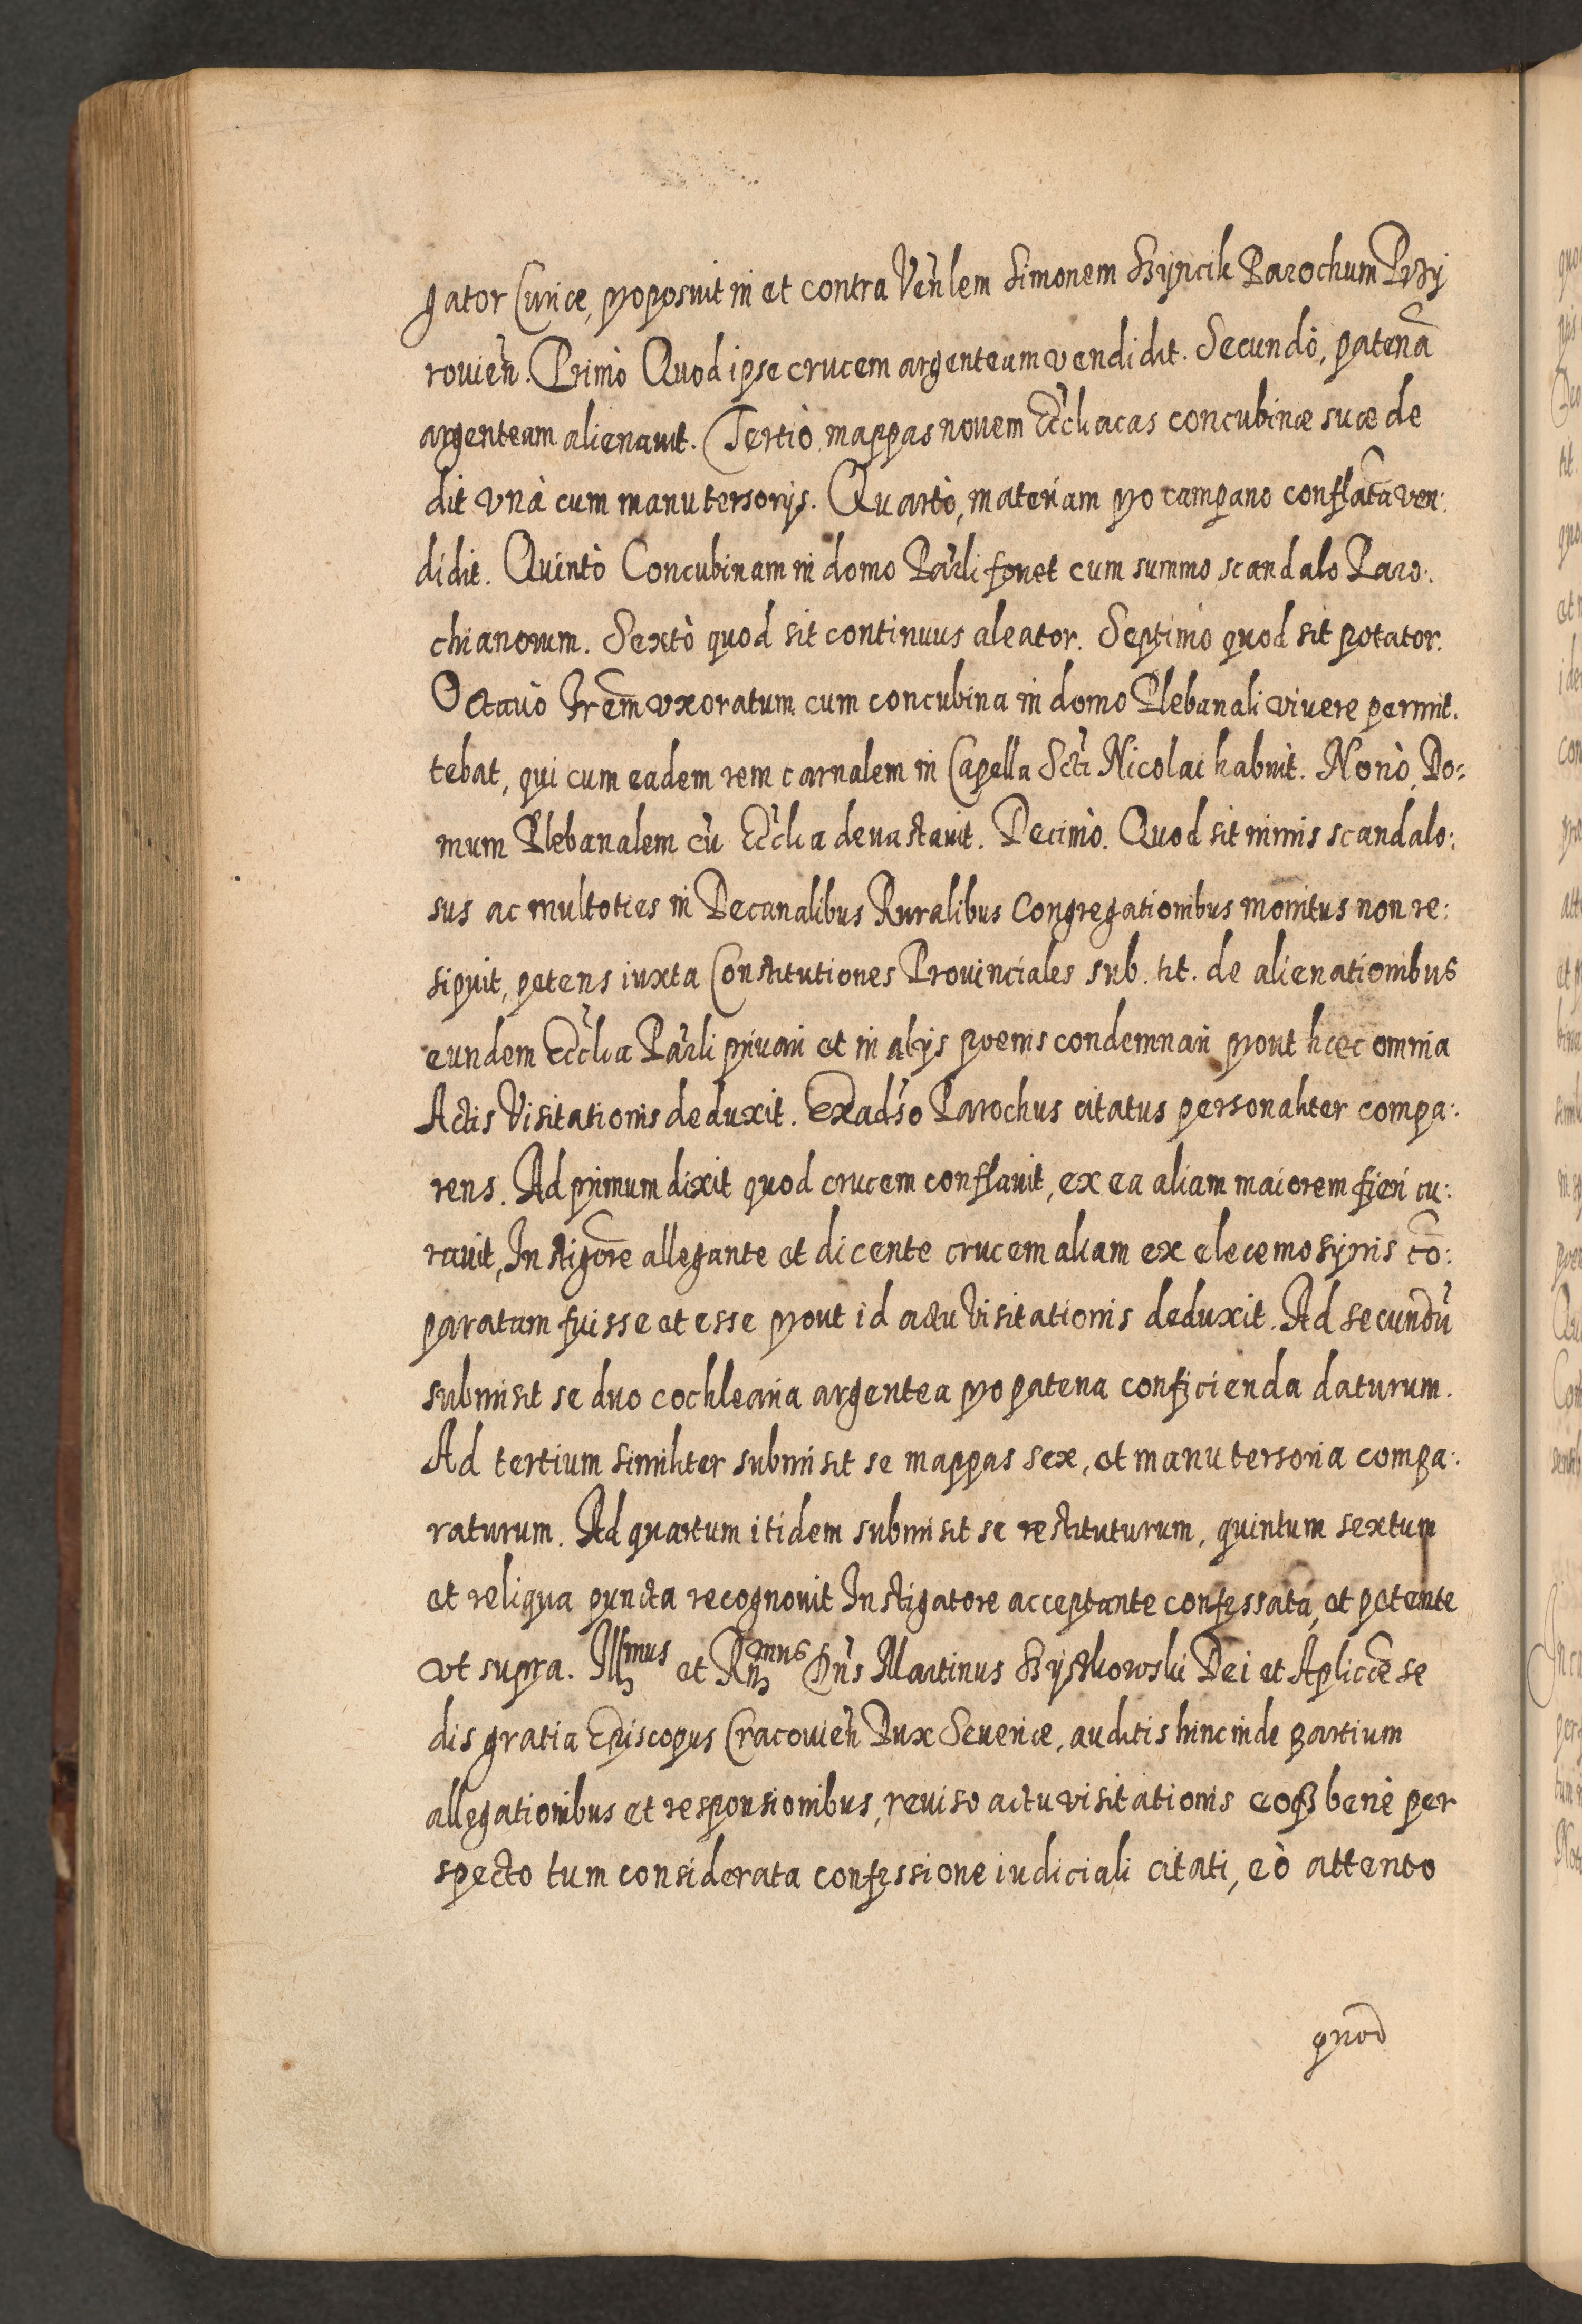 gator Curiæ, proposuit in et contra Ven̄lem Simonem Szyncik Parochum Przy
rouien̄. Primò Quod ipse crucem argenteam vendidit. Secundò, patenā
argenteam alienauit. Tertiò mappas nouem Ecc̄liacas concubinæ suæ de
dit vnà cum manutersorijs. Quartò, materiam pro campano conflatā ven:
didit. Quintò Concubinam in domo Par̄li fouet cum summo scandalo Paro:
chianorum. Sextò quod sit continuus aleator. Septimò quod sit potator.
Octauò Fr̄em vxoratum cum concubina in domo Plebanali viuere permit.
tebat, qui cum eadem rem carnalem in Capella Sc̄ti Nicolai habuit. Nonò, Do:
mum Plebanalem cū Ecc̄lia deuastauit. Decimò. Quod sit nimis scandalo:
sus ac multoties in Decanalibus Ruralibus Congregationibus monitus non re:
sipuit, petens iuxta Constitutiones Prouinciales sub. tit. de alienationibus
eundem Ecc̄lia Par̄li priuari et in alijs poenis condemnari prout hæc omnia
Actis Visitationis deduxit. Exads̄o Parochus citatus personaliter compa:
rens. Ad primum dixit quod crucem conflauit, ex ea aliam maiorem fieri cu:
rauit, Instigōre allegante et dicente crucem aliam ex eleemosynis cō:
paratam fuisse et esse prout id actu Visitationis deduxit. Ad secundū
submisit se duo cochlearia argentea pro patena conficienda daturum.
Ad tertium similiter submisit se mappas sex, et manutersoria compa:
raturum. Ad quartum itidem submisit se restituturum, quintum sextum
et reliqua puncta recognouit Instigatore acceptante confessata, et petente
vt supra. Illmus et Rn̄mus Dn̄s Martinus Szyszkowski Dei et Aplicæ se
dis gratia Episcopus Cracouien̄ Dux Seueriæ, auditis hincinde partium
allegationibus et responsionibus, reuiso actu visitationis eoqȝ benè per
specto tum considerata confessione iudiciali citati, eò attento
quod